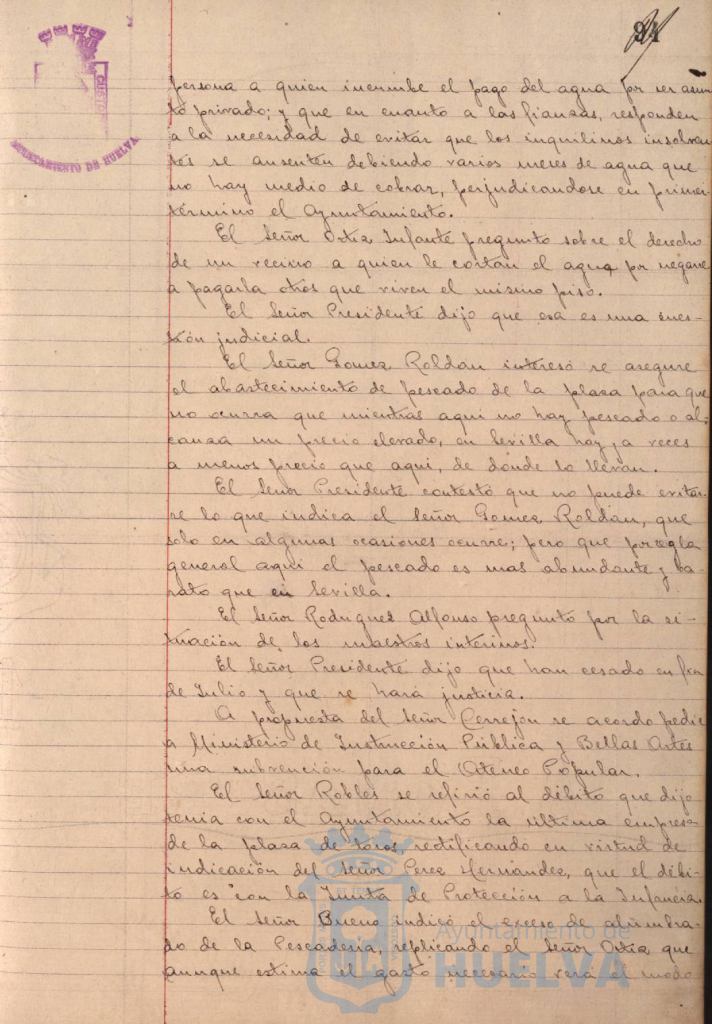 94
CUSTO
AYUNTAMIENTO DE HUELVA
persona a quien incumbe el pago del agua por ser asun
to privado; y que en cuanto a las fianzas, responden
a la necesidad de evitar que los inquilinos insolven
tes se ausenten debiendo varios meses de agua que
no hay medio de cobrar, perjudicandose en primer
término el Ayuntamiento.
El Señor Ortiz Infante pregunto sobre el derecho
de un vecino a quien le cortan el agua por negarse
a pagarla otros que viven el mismo piso.
El Señor Presidente dijo que esa es una cues-
tión judicial.
El Señor Gomez Roldan intereso se asegure
el abastecimiento de pescado de la plaza para que
no ocurra que mientras aqui no hay pescado o al-
canza un precio elevado, en Sevilla hay, a veces
a menos precio que aqui, de donde lo llevan.
El Señor Presidente contestó que no puede evitar-
se lo que indica el Señor Gomez Roldan, que
solo en algunas ocasiones ocurre; pero que por regla
general aqui el pescado es mas abundante y ba-
rato que en Sevilla.
El Señor Rodriguez Alfonso pregunto por la si-
tuación de los maestros interinos.
El Señor Presidente dijo que han cesado en fin
de Julio y que se hará justicia.
A propuesta del Señor Cerrejon se acordo pedir
a Ministerio de Instrucción Pública y Bellas Artes
una subvención para el Ateneo Popular.
El Señor Robles se refirió al débito que dijo
tenia con el Ayuntamiento la última empresa
de la plaza de toros, rectificando en virtud de
indicación del Señor Perez Hernandez, que el débi-
to es con la Junta de Protección a la Infancia.
El Señor Bueno indicó el exceso de alumbra-
do de la Pescaderia, replicando el Señor Ortiz que
aunque estima el gasto necesario verá el modo
Ayuntamiento de
HUELVA